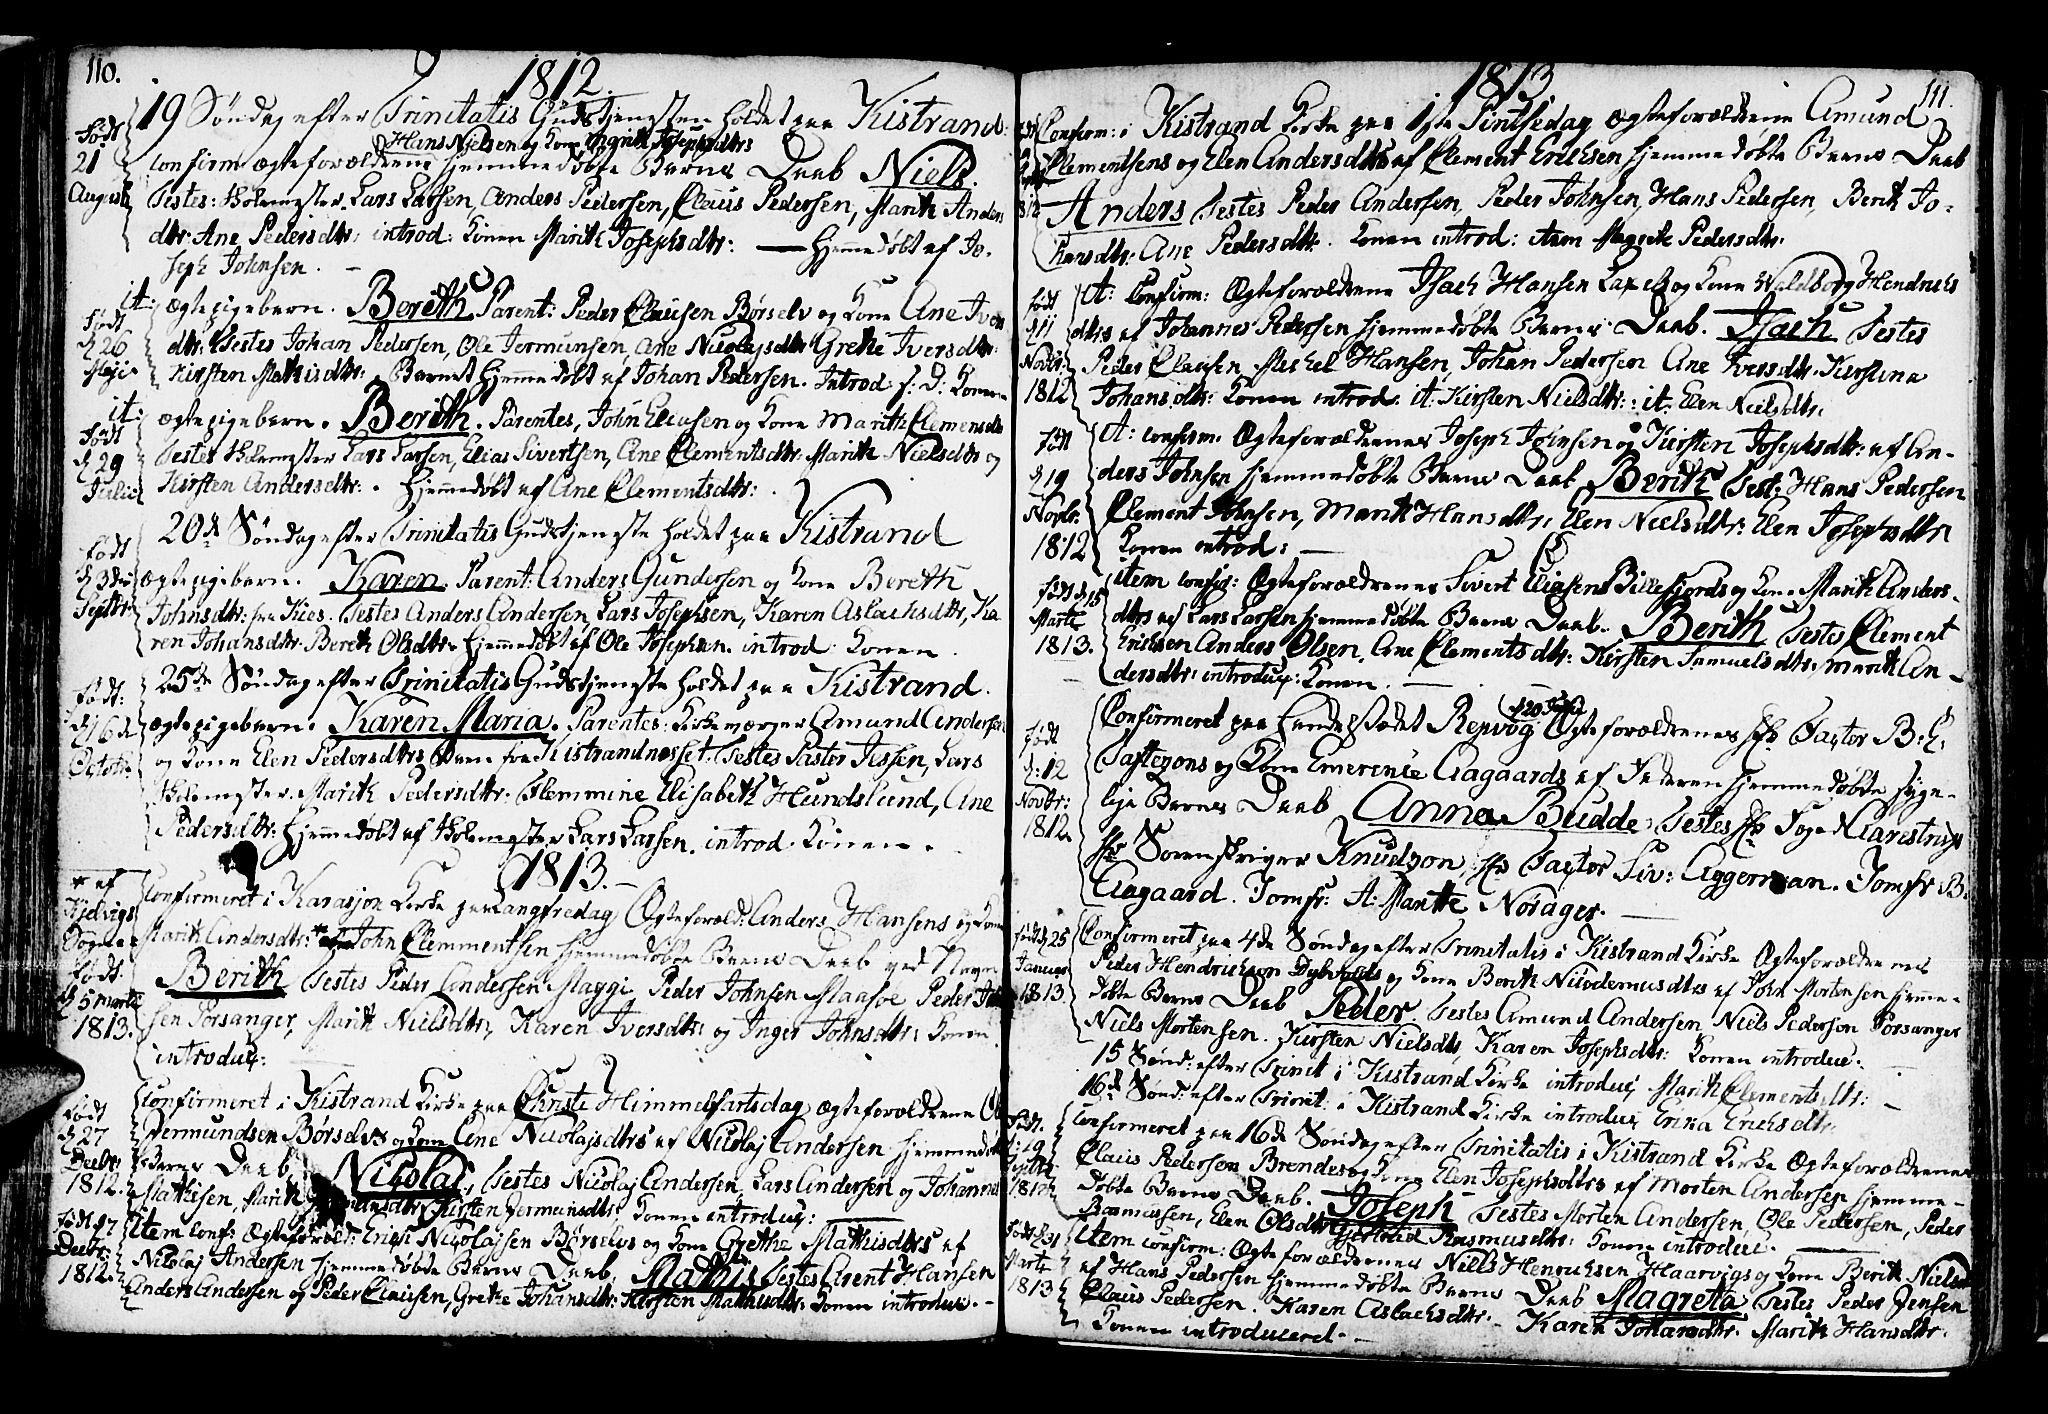 110.
1812.
19 Søndag efter Trinitatis Gudstjenesten holdet paa Kistrand:
Født
21
August
Hans Nielsen og Kone Ingrid Josephsdtrs
confirm ægteforældrene hjemmedøbte Barns Daab Niels.
Testes: Skolemester Lars Larsen, Anders Pedersen, Claus Pedersen, Marith Anders
dtr: Ane Pedersdtr: introd: Konen Marith Josephsdtr: — Hjemedøbt af Jo-
seph Johnsen. —
it:
Født
d 26
Maji
ægte pigebarn. Berith Parent: Peder Clausen Børselv og Kone Ane Ivers
dtr: Testes Johan Pedersen, Ole Jermunsen, Ane Nicolajsdtr Grethe Iversdtr:
Kirsten Mathisdtr: Barnet hjemmedøbt af Johan Pedersen. Introd: s. D: Konen
it:
Født
d 29
Julii
ægte pigebarn. Berith. Parentes, John Eliasen og Kone Marith Clemensdtr
Testes Skolemester Lars Larsen, Elias Sivertsen, Ane Clementsdtr: Marith Nielsdtr og
Kirsten Andersdtr: . Hjemedøbt af Ane Clementsdtr: .
20de Søndag efter Trinitatis Gudstjeneste holdet paa Kistrand
Født
d 3die
Septbr:
ægte pigebarn. Karen. Parent: Anders Gundersen og Kone Bereth
Johnsdtr: fra Kies. Testes Anders Andersen, Lars Josephsen, Karen Aslachsdtr, Ka
ren Johansdtr. Bereth Olsdtr. Hjemmedøbt af Ole Josephsen. introd: Konen.
25de Søndag efter Trinitatis Gudstjeneste holdet paa Kistrand.
Født:
d 16de
Octobr:
ægte pigebarn. Karen Maria. Parentes: Kirkeværger Amund Andersen
og Kone Elen Pedersdtrs Barn fra Kistrandnæsset. Testes Pastor Jessen, Lars
Skolemester. Marith Pedersdtr. Flemmine Elisabeth Hundslund, Ane
Pedersdtr: Hjemmedøbt af Skolemester Lars Larsen. introd. Konen.
1813. —
* af
Kjelvigs
Sogn
Født:
d 5 Marti
1813.
Confirmeret i Karasjok Kirke paa Langfredag Ægteforæld: Anders Hansens og Kone
Marith Andersdtr: * John Clemmentsen hjemmedøbte Barns Daab ved Navn
Berith Testes Peder Andersen Maggi Peder Johnsen Maasøe Peder
sen Porsanger, Marith Nielsdtr, Karen Iversdtr: og Inger Johnsdtr: Konen
introduc:
Født
d 27
Decbr:
1812.
Confirmeret i Kistrand Kirke paa Christi Himmelfartsdag ægteforældrene
Jermundsen Børselvs og Kone Ane Nicolajsdtrs af Nicolaj Andersen hjemmedøbt
Barns Daab Nicolai, Testes Nicolaj Andersen, Lars Andersen og Johannes
Mathisen, Marith Kirsten Jermunsdtr, Konen introduc:
Født 17
Decbr:
1812.
Item conf: Ægteforæld: Erich Nicolajsen Børselvs og Kone Grethe Mathisdtrs af
Nicolaj Andersen hjemmedøbte Barns Daab, Mathis Testes Arent Hansen
Anders Andersen og Peder Clausen, Grethe Johansdtr: Kirsten Mathisdtr: Konen introduc. —
1813
111.
Confirm: i Kistrand Kirke paa 1ste Pintsedag ægteforældrene Amund
1812
Clementsens og Elen Andersdtrs af Clement Erichsen hjemmedøbte Barns Daab
Anders Testes Peder Andersen, Peder Johnsen, Hans Pedersen, Berith Jo-
hansdtr: Ane Pedersdtr. Konen introd: item Magrete Pedersdtr.
Født
d 11
Novbr.
1812
It: Confirm: Ægteforældrene Isach Hansen Laxels og Kone Waldborg Hendrichs
dtrs af Johannes Pedersen hjemmedøbte Barns Daab. Isach Testes
Peder Clausen, Michel Hansen, Johan Pedersen Ane Iversdtr. Kirstina
Johansdtr. Konen introd. it: Kirsten Nielsdtr: it. Elen Nielsdtr.
Født
d 19
Novbr.
1812
It: confirm. Ægteforældrenes Joseph Johnsen og Kirsten Josephsdtr: af An-
ders Johnsen hjemmedøbte Barns Daab Berith Test: Hans Pedersen
Clement Johnsen, Marith Hansdtr, Elen Nielsdtr: Elen Josephsdtr
Konen introd: —
Født d 15
Marti
1813.
item confir: Ægteforældrenes Sivert Eliasens Billefjords og Kone Marith Anders-
dtrs af Lars Larsen hjemmedøbte Barns Daab. Berith Testes Clement
Erichsen Anders Olsen, Ane Clementsdtr: Kirsten Samuelsdtr: Marith An-
dersdtr: introduc: Konen. —
Født
d: 12
Novbr:
1812.
Confirmeret paa Handelstædet Repvog Ægteforældrenes Hr Factor B: E:
og Kone Emerence Aagaards af Faderen hjemmedøbte pige-
lige Barns Daab Anna Budde. Testes Hr Foged Klarestrup
Hr Sorenskriver Knudzon, Hr Factor Siv: Aggerman. Jomfr B.
Aagaard. Jomfr: A: Marthe Norager. —
Født d 25
Januar
1813.
Confirmeret paa 4de Søndag efter Trinitatis i Kistrand Kirke Ægteforældrenes
Peder Hendrichsen og Kone Berith Nicodemusdtrs af John Mortensen hjemme-
døbte Barns Daab Peder. Testes Amund Andersen, Niels Pedersen Porsanger
Niels Mortensen. Kirsten Nielsdtr, Karen Josephsdtr: Konen introduc.
15 Sønd: efter Trinit i Kistrand Kirke introduc, Marith Clementsdtr: —
16de Sønd: efter Trinit: i Kistrand Kirke introduc Erika Erichsdtr.
Født.
d: 19
1813
Confirmeret paa 16de Søndag efter Trinitatis i Kistrand Kirke Ægteforældrenes
Claus Pedersen Brendes og Kone Elen Josephsdtrs af Morten Andersen hjemme-
døbte Barns Daab. Joseph Testes Morten Andersen, Ole Pedersen, Peder
Rasmussen, Elen Olsdtr Gjertrud Rasmusdtr: Konen introduc. —
Født d 31
Marti
1813
Item confirm: Ægteforældrenes Niels Henrichsen Haarvigs og Kone Berith Niels
af Hans Pedersen hjemmedøbte Barns Daab Magreta Testes Peder Jensen
Claus Pedersen. Karen Aslachsdtr. Karen Johansdtr. Marith Hansdtr.
Konen introduceret. —